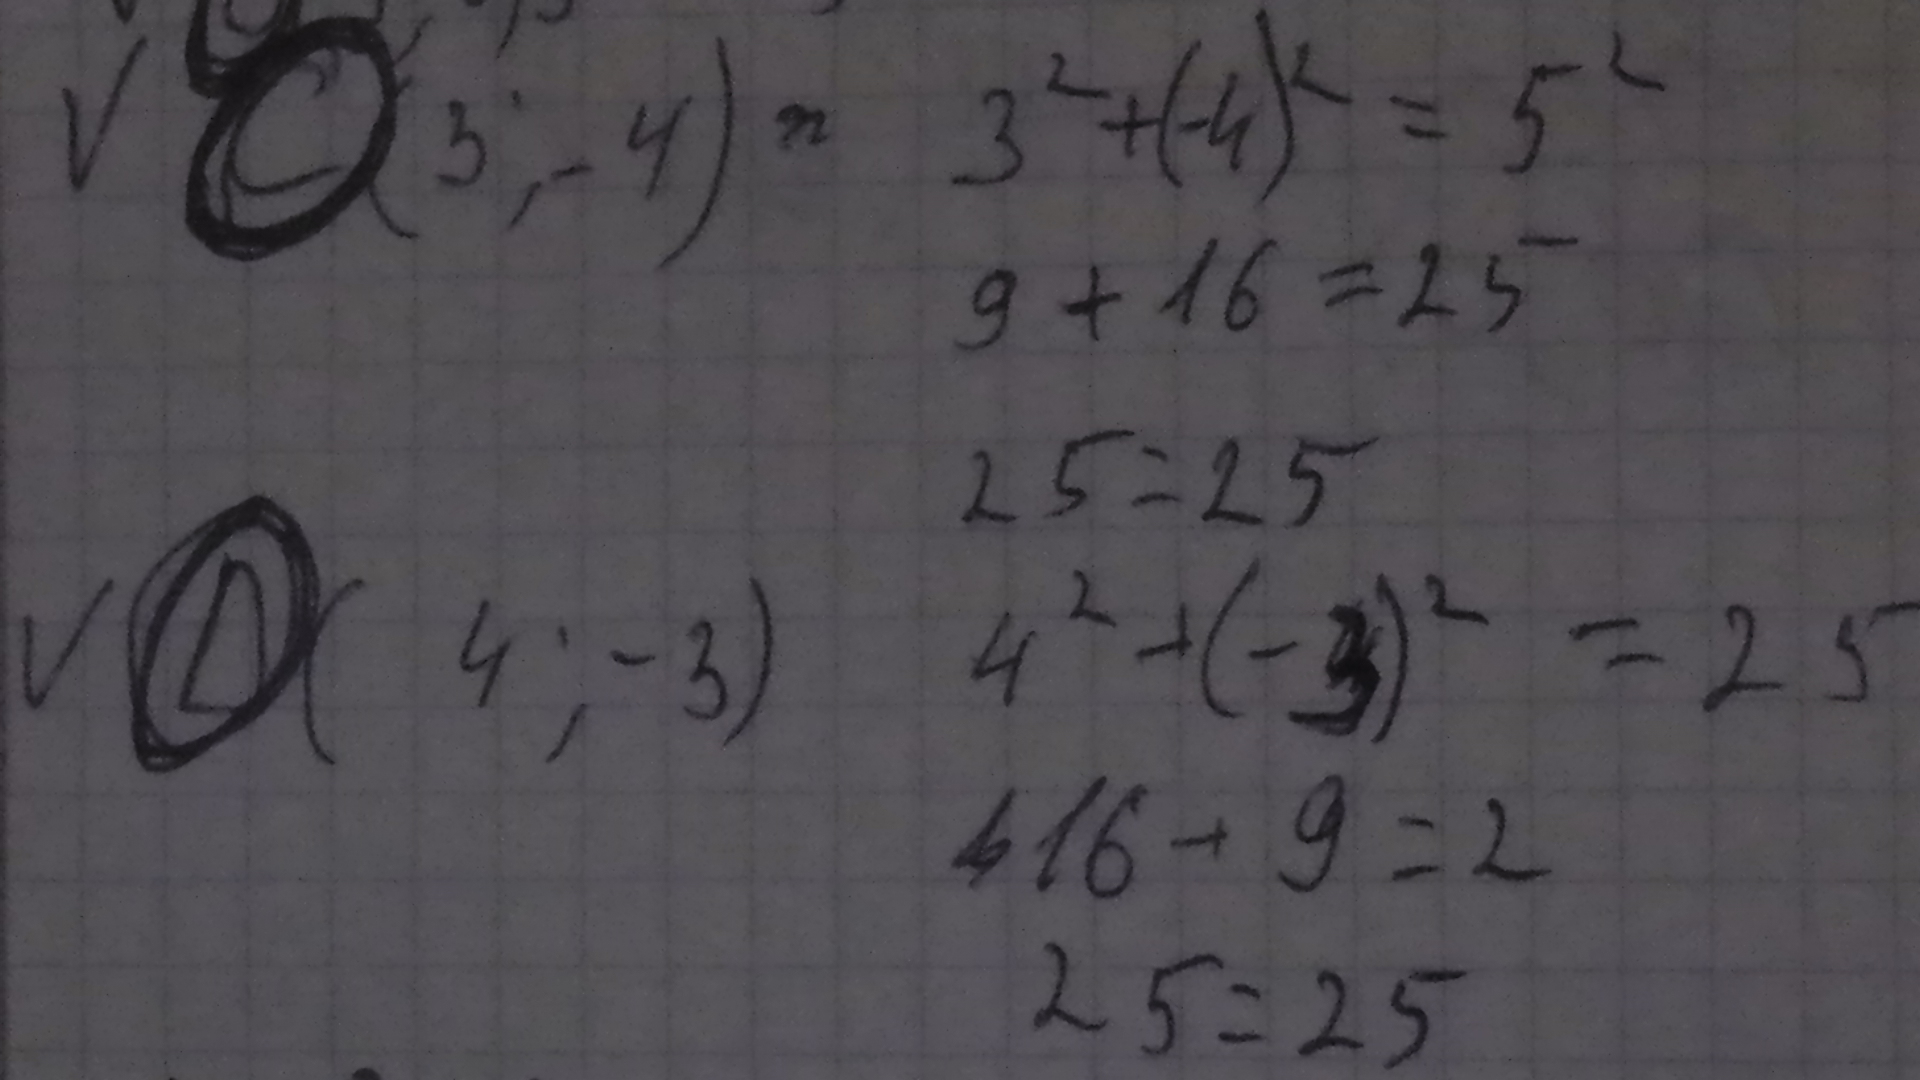 √ C (3; -4) 3² + (-4)² = 5²
9 + 16 = 25
25 = 25
√ D (4; -3) 4² + (-3)² = 25
16 + 9 = 2
25 = 25